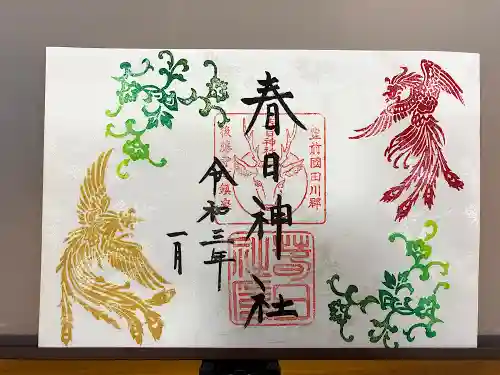 春日神社
令和三年
一月
豊前國田川郡